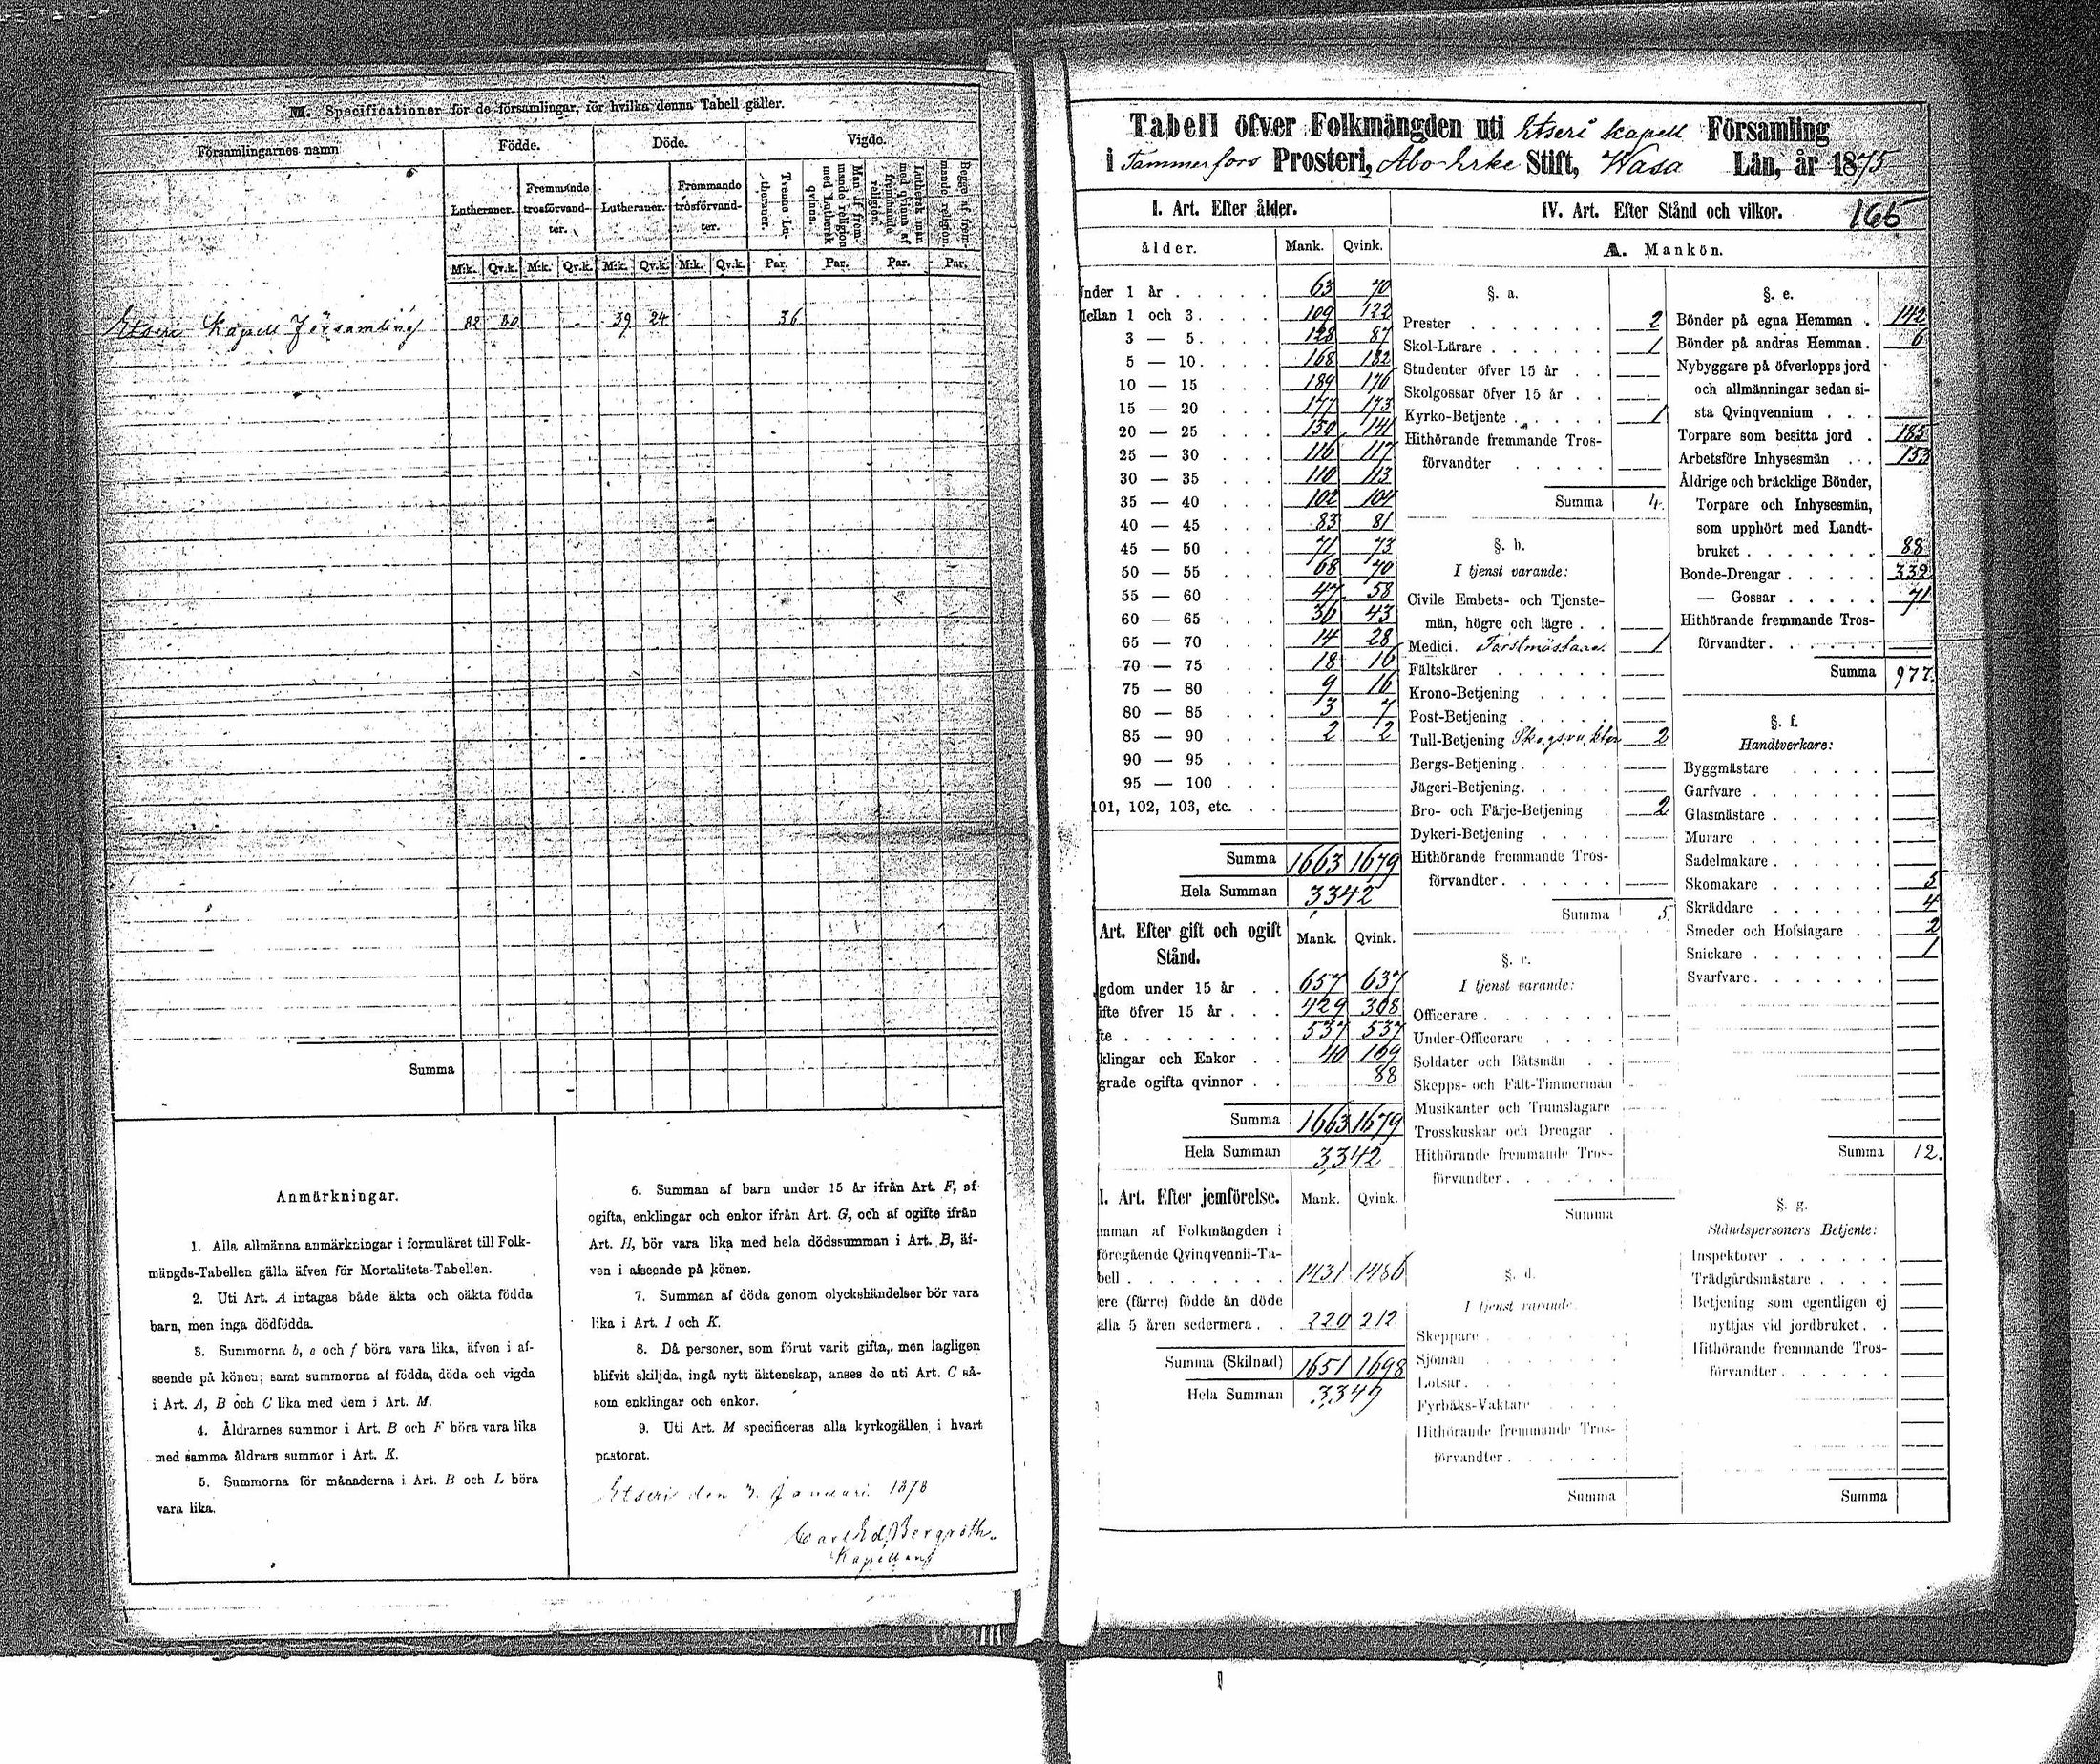 M. Specificationer för de församlingar, för hvilka denna Tabell gäller.
Församlingarnes namn
Födde.
Döde.
Vigde.
Lutheraner.
Fremmande trosförvandter.
Lutheraner.
Frömmande trosförvandter.
Trenne Lutheraner.
Man af fremmande religion med Luthersk qvinna.
Luthersk man med qvinna af fremmande religion.
Begge af fremmande religion.
M:k. Qv.k. M:k. Qv.k. M:k. Qv.k. M:k. Qv.k. Par. Par. Par. Par.
Etseri Kapell Församling 82 80 39 24 36
Summa
Anmärkningar.
1. Alla allmänna anmärkningar i formuläret till Folk-
mängds-Tabellen gälla äfven för Mortalitets-Tabellen.
2. Uti Art. A intagas både äkta och oäkta födda
barn, men inga dödfödda.
3. Summorna b, e och f böra vara lika, äfven i af-
seende på könen; samt summorna af födda, döda och vigda
i Art. A, B och C lika med dem i Art. M.
4. Åldrarnes summor i Art. B och F böra vara lika
med samma åldrars summor i Art. K.
5. Summorna för månaderna i Art. B och L böra
vara lika.
6. Summan af barn under 15 år ifrån Art. F, af
ogifta, enklingar och enkor ifrån Art. G, och af ogifte ifrån
Art. H, bör vara lika med hela dödssumman i Art. B, äf-
ven i afseende på könen.
7. Summan af döda genom olyckshändelser bör vara
lika i Art. I och K.
8. Då personer, som förut varit gifta, men lagligen
blifvit skiljda, ingå nytt äktenskap, anses de uti Art. C så-
som enklingar och enkor.
9. Uti Art. M specificeras alla kyrkogällen i hvart
pastorat.
Etseri den 3. Januari 1878
Carl Ed. Bergroth.
Kapellan
Tabell öfver Folkmängden uti Etseri Kapell Församling
i Tammerfors Prosteri, Abo Erke Stift, Wasa Län, år 1875
165
I. Art. Efter ålder.
ålder. Mank. Qvink.
nder 1 år 63 70
ellan 1 och 3 109 122
3 — 5 128 87
5 — 10 168 182
10 — 15 189 176
15 — 20 177 173
20 — 25 150 141
25 — 30 116 117
30 — 35 110 113
35 — 40 102 104
40 — 45 83 81
45 — 50 71 73
50 — 55 68 70
55 — 60 47 58
60 — 65 36 43
65 — 70 14 28
70 — 75 18 16
75 — 80 9 16
80 — 85 3 7
85 — 90 2 2
90 — 95
95 — 100
101, 102, 103, etc.
Summa 1663 1679
Hela Summan 3342
Art. Efter gift och ogift Stånd. Mank. Qvink.
gdom under 15 år 657 637
ifte öfver 15 år 429 308
te 537 537
klingar och Enkor 40 109
grade ogifta qvinnor 88
Summa 1663 1679
Hela Summan 3342
I. Art. Efter jemförelse. Mank. Qvink.
mman af Folkmängden i
föregående Qvinqvennii-Ta-
bell 1431 1486
ere (färre) födde än döde
alla 5 åren sedermera 220 212
Summa (Skilnad) 1651 1698
Hela Summan 3349
IV. Art. Efter Stånd och vilkor.
A. Mankön.
§. a.
Prester 2
Skol-Lärare 1
Studenter öfver 15 år
Skolgossar öfver 15 år
Kyrko-Betjente 1
Hithörande fremmande Tros-
förvandter
Summa 4.
§. b.
I tjenst varande:
Civile Embets- och Tjenste-
män, högre och lägre
Medici. Forstmästare. 1
Fältskärer
Krono-Betjening
Post-Betjening
Tull-Betjening Skogsvakter 2
Bergs-Betjening
Jägeri-Betjening
Bro- och Färje-Betjening 2
Dykeri-Betjening
Hithörande fremmande Tros-
förvandter
Summa 5
§. c.
I tjenst varande:
Officerare
Under-Officerare
Soldater och Båtsmän
Skepps- och Fält-Timmermän
Musikanter och Trumslagare
Trosskuskar och Drengar
Hithörande fremmande Tros-
förvandter
Summa
§. d.
I tjenst varande.
Skeppare
Sjömän
Lotsar
Fyrbåks-Vaktare
Hithörande fremmande Tros-
förvandter
Summa
§. e.
Bönder på egna Hemman 142
Bönder på andras Hemman 6
Nybyggare på öfverlopps jord
och allmänningar sedan si-
sta Qvinqvennium
Torpare som besitta jord 185
Arbetsföre Inhysesmän 153
Åldrige och bräcklige Bönder,
Torpare och Inhysesmän,
som upphört med Landt-
bruket 88
Bonde-Drengar 332
— Gossar 71
Hithörande fremmande Tros-
förvandter
Summa 977.
§. f.
Handtverkare:
Byggmästare
Garfvare
Glasmästare
Murare
Sadelmakare
Skomakare 5
Skräddare 4
Smeder och Hofslagare 2
Snickare 1
Svarfvare
Summa 12.
§. g.
Ståndspersoners Betjente:
Inspektorer
Trädgårdsmästare
Betjening som egentligen ej
nyttjas vid jordbruket
Hithörande fremmande Tros-
förvandter
Summa